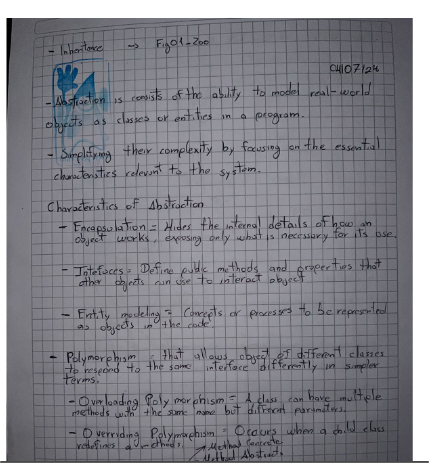 - Inheritance → Fig01-Zoo
04/07/24
- Abstraction is consists of the ability to model real-world
objects as classes or entities in a program.
- Simplifying their complexity by focusing on the essential
characteristics relevant to the system.
Characteristics of Abstraction
- Encapsulation = Hides the internal details of how an
object works, exposing only what is necessary for its use.
- Intefaces = Define public methods and properties that
other objects can use to interact object
- Entity modeling = Concepts or processes to be represented
as objects in the code.
- Polymorphism : that allows object of different classes
to respond to the same interface differently in simpler
terms.
- Overloading Polymorphism = A class can have multiple
methods with the same name but diferent parameters.
- Overriding Polymorphism = Occurs when a child class
redefines a methods. → Method Concrete
Method Abstract